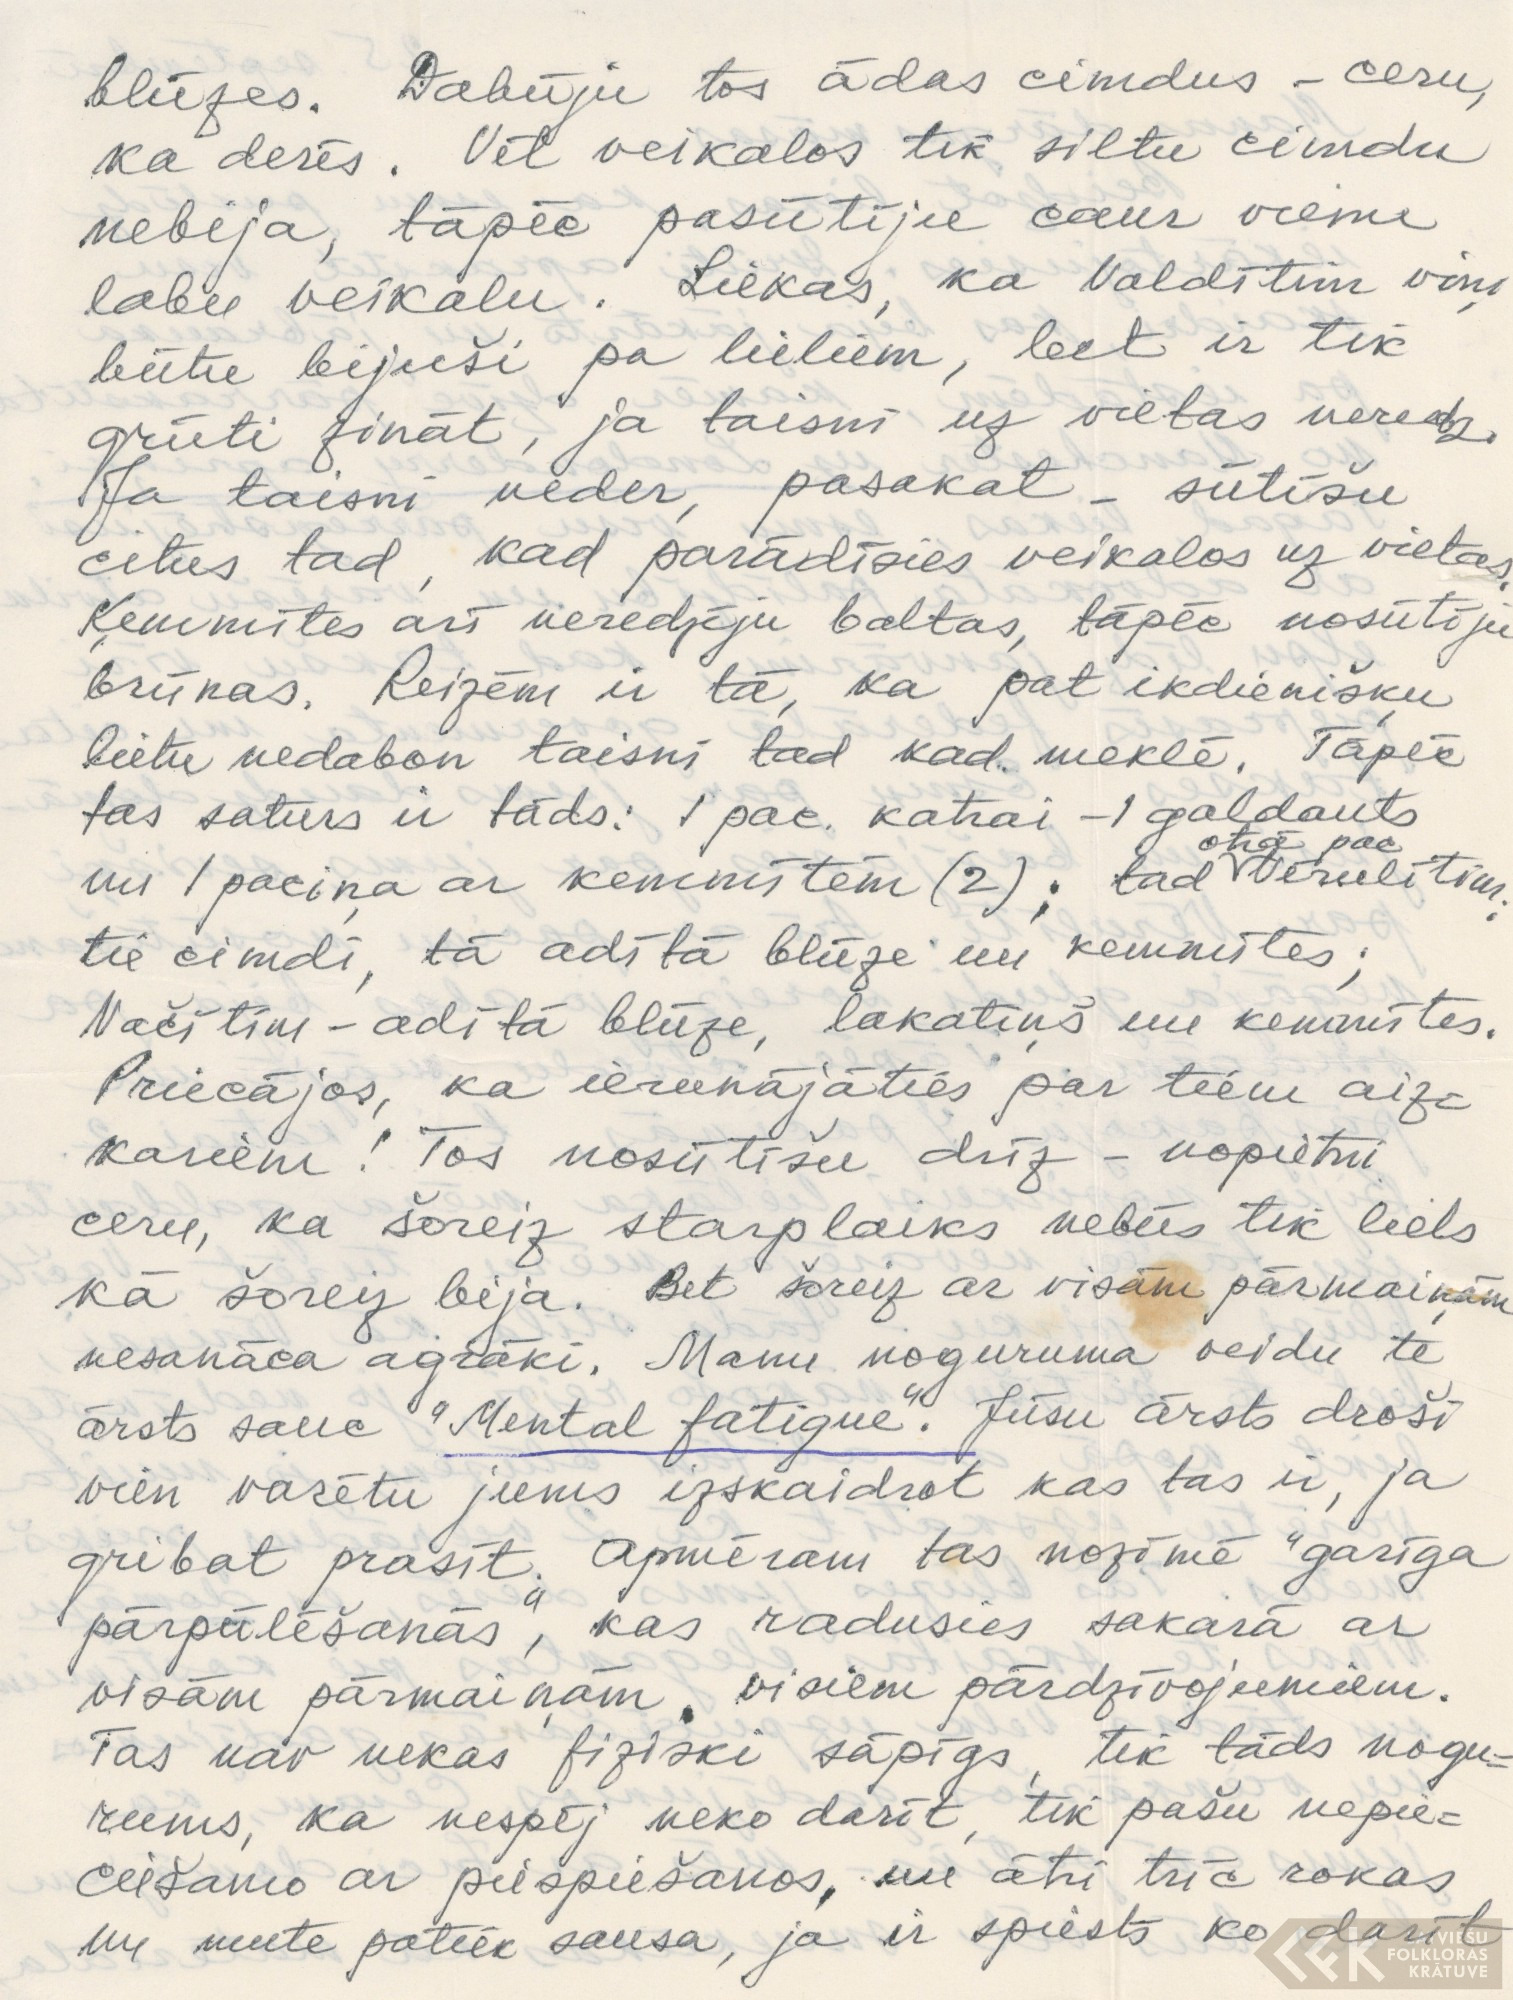 blūzes. Dabūju tos ādas cimdus – ceru,
ka derēs. Vēl veikalos tik siltu cimdu
nebija, tāpēc pasūtīju caur vienu
labu veikalu. Liekas, ka Valdītim viņi
būtu bijuši pa lieliem, bet ir tik
grūti zināt, ja taisni uz vietas neredz.
Ja taisni neder, pasakat – sūtīšu
citus tad, kad parādīsies veikalos uz vietas.
Ķemmītes arī neredzēju baltas, tāpēc nosūtīju
brūnas. Reizēm ir tā, ka pat ikdienišķu
lietu nedabon taisni tad kad meklē. Tāpēc
tas saturs ir tāds: 1 pac. katrai – 1 galdauts
otrā pac
un 1 paciņa ar ķemmītēm (2); tad Vērulītim:
tie cimdi, tā adītā blūze un ķemmītes;
Načītim – adītā blūze, lakatiņš un ķemmītes.
Priecājos, ka ierunājāties par tiem aiz=
kariem! Tos nosūtīšu drīz – nopietni
ceru, ka šoreiz starplaiks nebūs tik liels
kā šoreiz bija. Bet šoreiz ar visām pārmaiņām
nesanāca agrāki. Manu noguruma veidu te
ārsts sauc "Mental fatigue". Jūsu ārsts droši
vien varētu jums izskaidrot kas tas ir, ja
gribat prasīt. Apmēram tas nozīmē "garīga
pārpūlēšanās", kas radusies sakarā ar
visām pārmaiņām, visiem pārdzīvojumiem.
Tas nav nekas fiziski sāpīgs, tik tāds nogu=
rums, ka nespēj neko darīt, tik pašu nepie=
ciešamo ar piespiešanos, un ātri trīc rokas
un mute paliek sausa, ja ir spiests ko darīt
LATVIEŠU
FOLKLORAS
KRĀTUVE